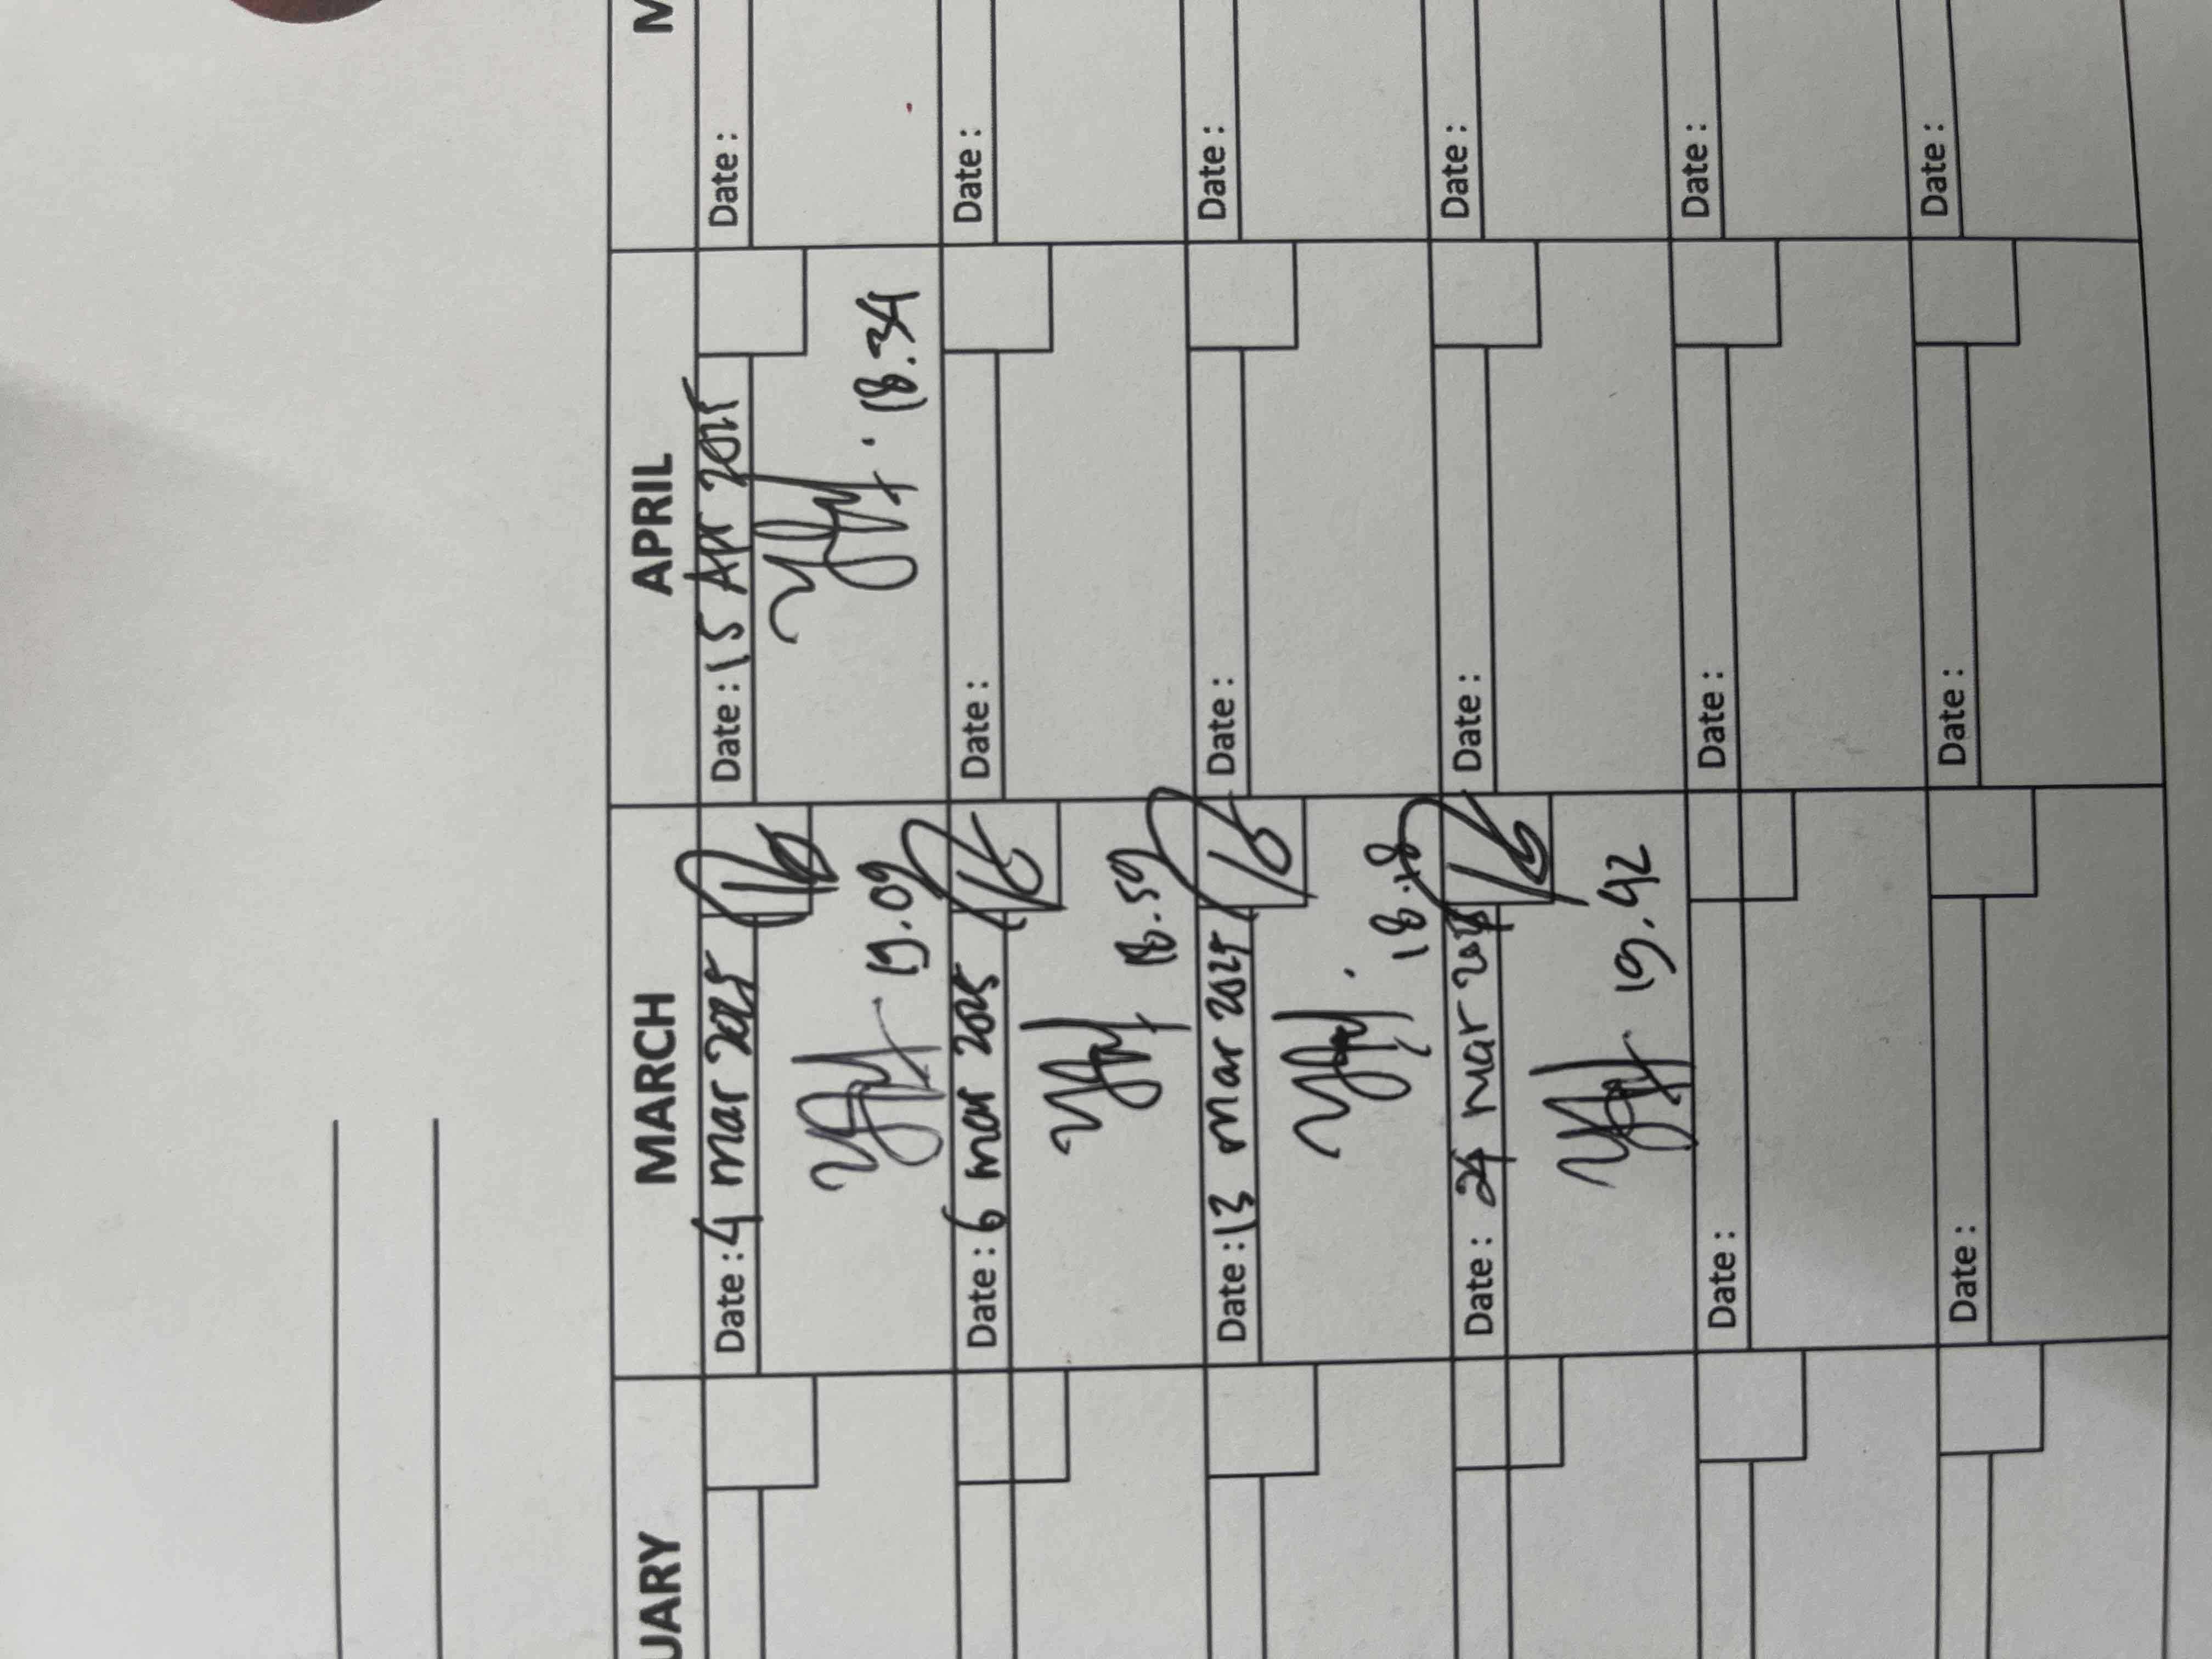 UARY
MARCH
APRIL
M
Date : 4 mar 2025
19.09
Date : 15 Apr 2025
18.34
Date :
Date : 6 mar 2025
18.59
Date :
Date :
Date : 13 mar 2025
18.18
Date :
Date :
Date : 24 mar
19.42
Date :
Date :
Date :
Date :
Date :
Date :
Date :
Date :